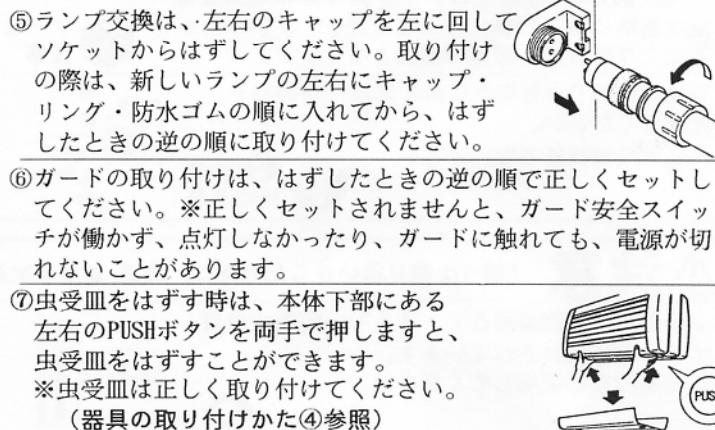 ⑤ランプ交換は、左右のキャップを左に回して
ソケットからはずしてください。取り付け
の際は、新しいランプの左右にキャップ・
リング・防水ゴムの順に入れてから、はず
したときの逆の順に取り付けてください。
⑥ガードの取り付けは、はずしたときの逆の順で正しくセットし
てください。※正しくセットされませんと、ガード安全スイッ
チが働かず、点灯しなかったり、ガードに触れても、電源が切
れないことがあります。
⑦虫受皿をはずす時は、本体下部にある
左右のPUSHボタンを両手で押しますと、
虫受皿をはずすことができます。
※虫受皿は正しく取り付けてください。
(器具の取り付けかた④参照)
PUS